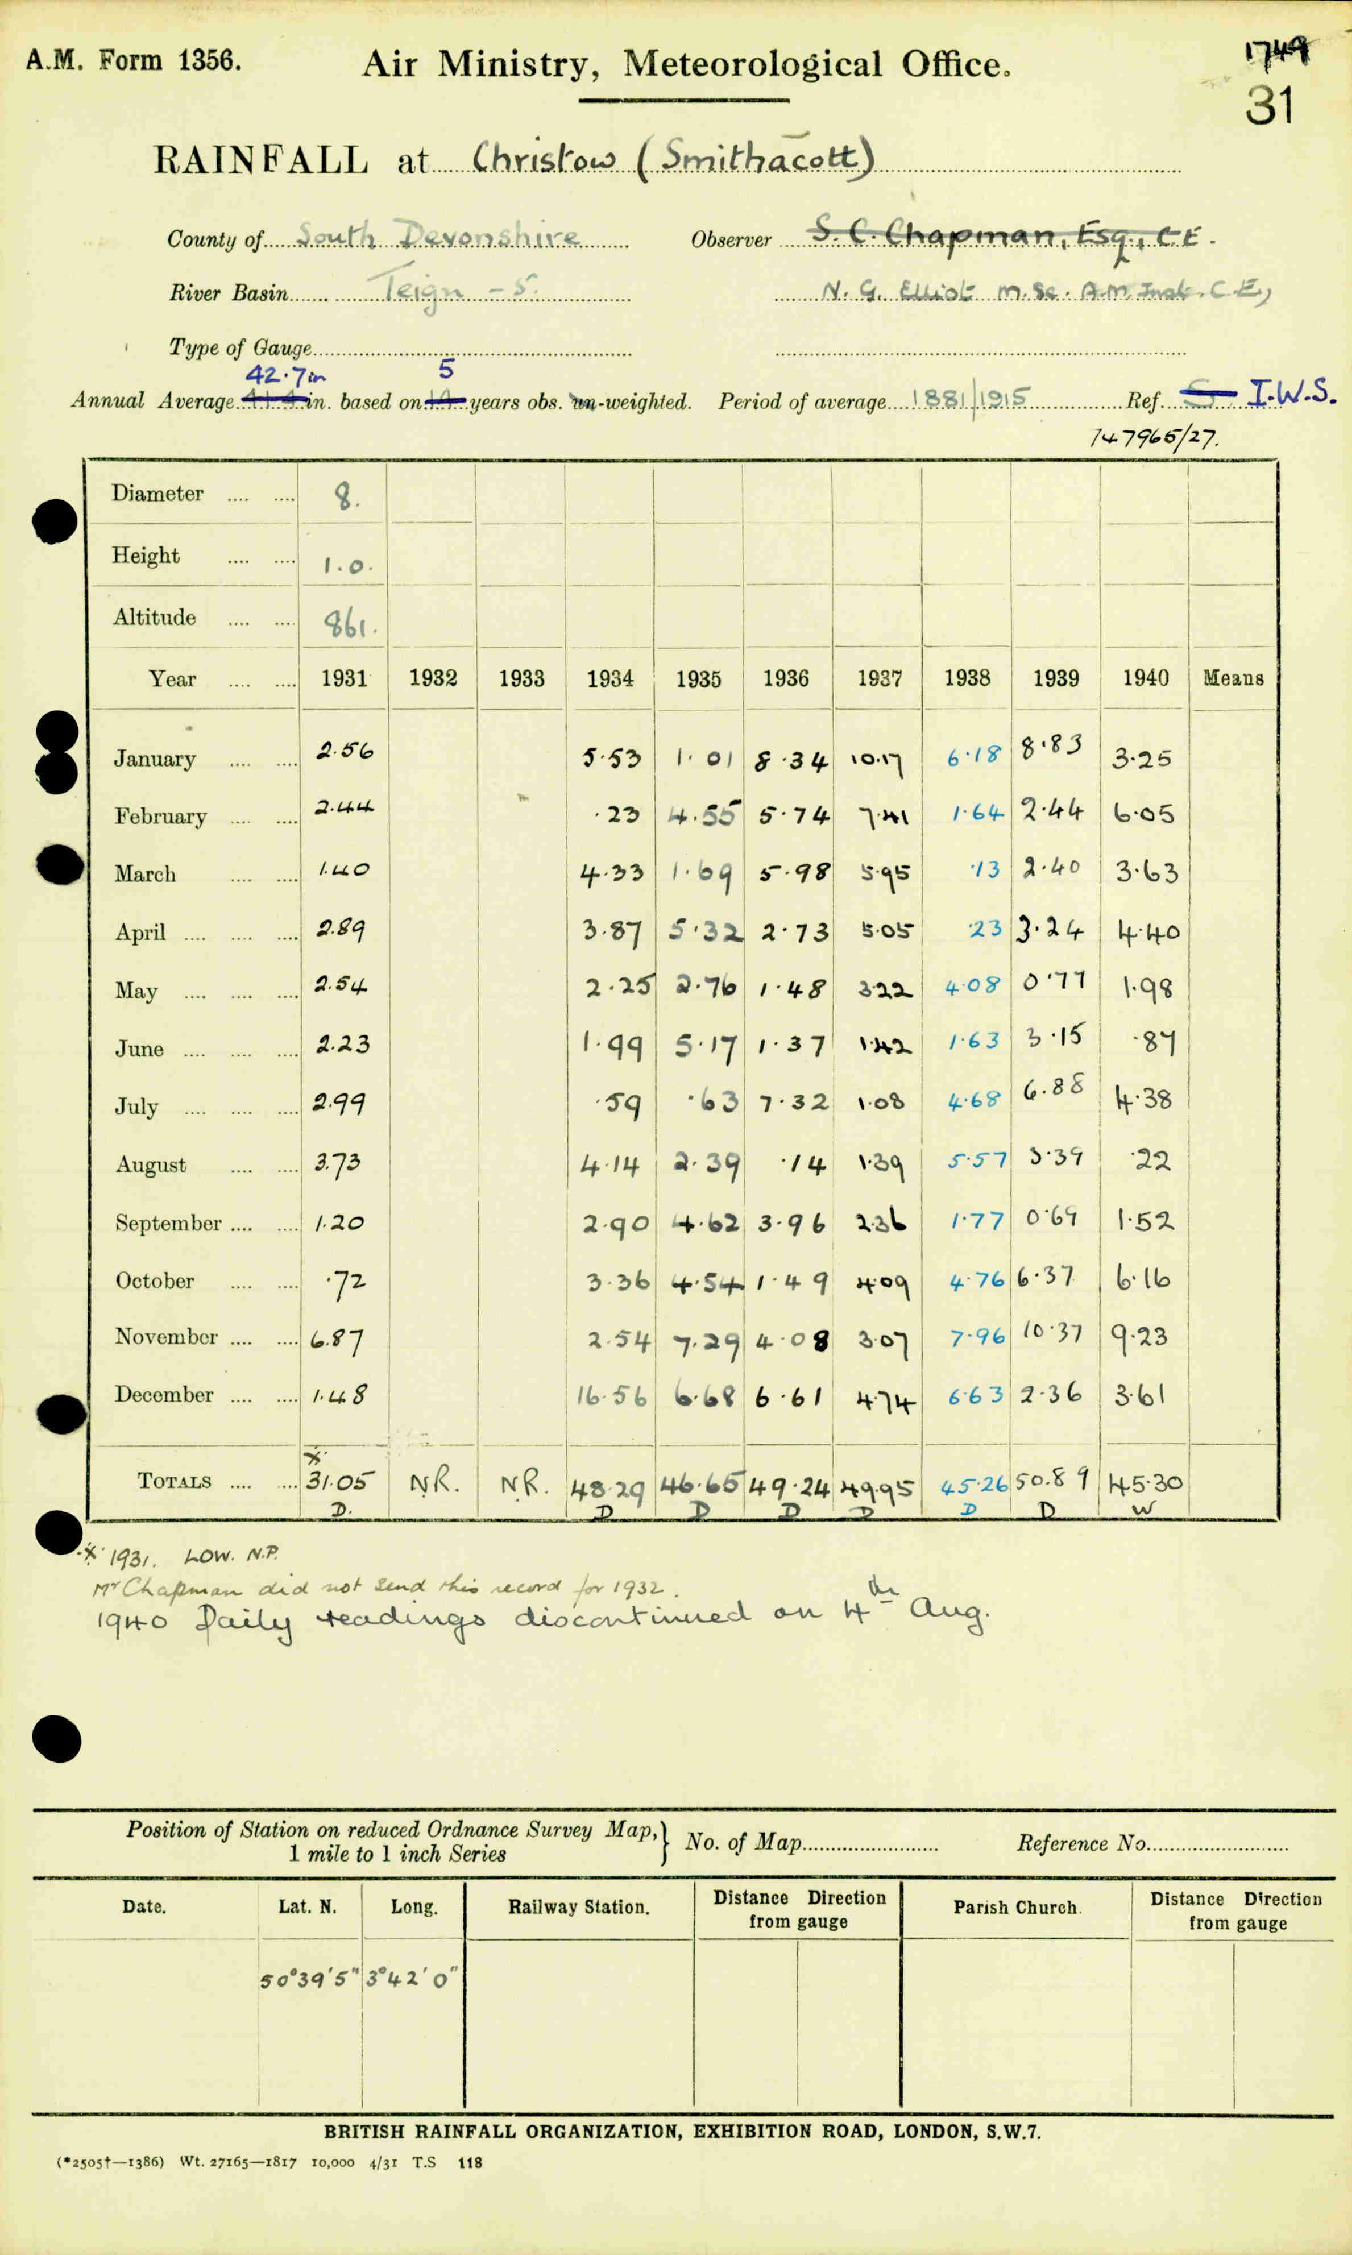 A.M. Form 1356.
Air Ministry, Meteorological Office.
1749
31
RAINFALL at Christow (Smithacott)
County of South Devonshire Observer S. C. Chapman, Esq., C.E.
River Basin Teign - S. N. G. Elliot M.Sc. A.M. Inst. C.E.,
Type of Gauge
42.7in 5
Annual Average in. based on years obs. un-weighted. Period of average 1881/1915 Ref. S I.W.S.
147965/27.
Diameter 8.
Height 1.0.
Altitude 861.
Year 1931 1932 1933 1934 1935 1936 1937 1938 1939 1940 Means
January 2.56 5.53 1.01 8.34 10.17 6.18 8.83 3.25
February 2.44 .23 4.55 5.74 7.41 1.64 2.44 6.05
March 1.40 4.33 1.69 5.98 5.95 .13 2.40 3.63
April 2.89 3.87 5.32 2.73 5.05 .23 3.24 4.40
May 2.54 2.25 2.76 1.48 3.22 4.08 0.77 1.98
June 2.23 1.99 5.17 1.37 1.42 1.63 3.15 .87
July 2.99 .59 .63 7.32 1.08 4.68 6.88 4.38
August 3.73 4.14 2.39 .14 1.39 5.57 3.39 .22
September 1.20 2.90 4.62 3.96 2.36 1.77 0.69 1.52
October .72 3.36 4.54 1.49 4.09 4.76 6.37 6.16
November 6.87 2.54 7.29 4.08 3.07 7.96 10.37 9.23
December 1.48 16.56 6.68 6.61 4.74 6.63 2.36 3.61
x
TOTALS 31.05 N.R. N.R. 48.29 46.65 49.24 49.95 45.26 50.89 45.30
D. D D D D D D W
x 1931. LOW. N.P.
Mr Chapman did not send this record for 1932.
1940 Daily readings discontinued on 4th Aug.
Position of Station on reduced Ordnance Survey Map, } No. of Map Reference No.
1 mile to 1 inch Series
Date. Lat. N. Long. Railway Station. Distance Direction from gauge Parish Church. Distance Direction from gauge
50°39'5" 3°42'0"
BRITISH RAINFALL ORGANIZATION, EXHIBITION ROAD, LONDON, S.W.7.
(*2505†—1386) Wt. 27165—1817 10,000 4/31 T.S 118